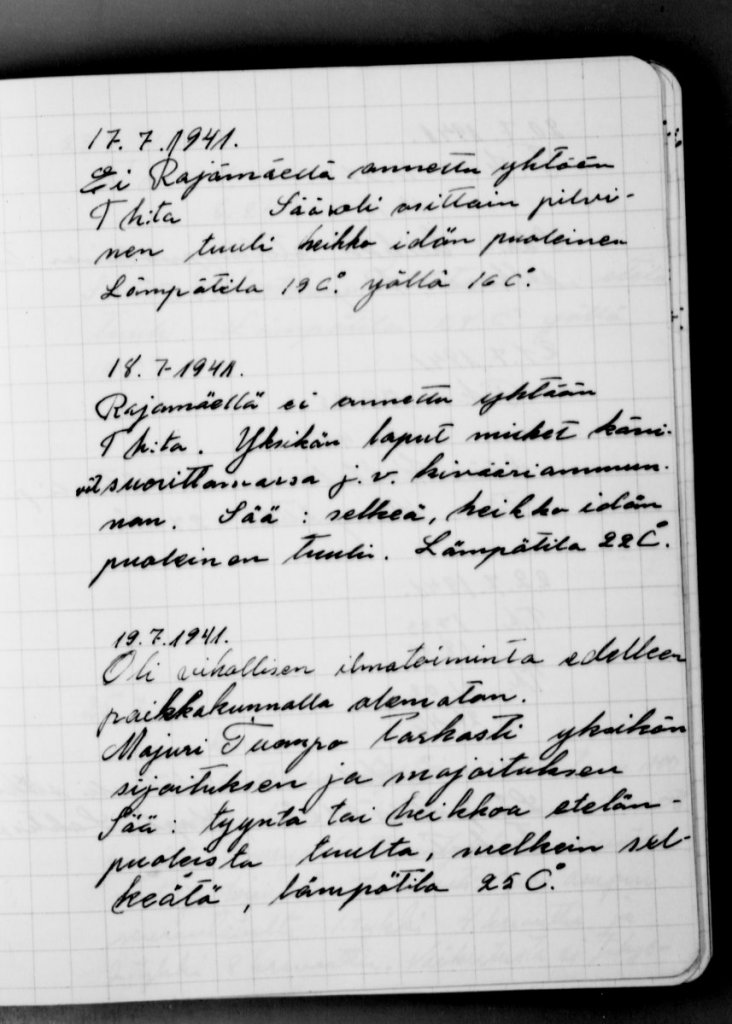 17.7.1941.
Ei Rajamäellä annettu yhtään
T h:ta Sää oli osittain pilvi-
nen tuuli heikko idän puoleinen
Lämpötila 19 C°. yöllä 16 C°.
18.7.1941.
Rajamäellä ei annettu yhtään
T h:ta. Yksikön loput miehet kävi-
vät suorittamassa j.v. kivääriammun-
nan. Sää : selkeä, heikko idän
puoleinen tuuli. Lämpötila 22 C°.
19.7.1941.
Oli vihollisen ilmatoiminta edelleen
paikkakunnalla olematon.
Majuri tarkasti yksikön
sijoituksen ja majoituksen
Sää : tyyntä tai heikkoa etelän-
puoleista tuulta, melkein sel-
keätä, lämpötila 25 C°.